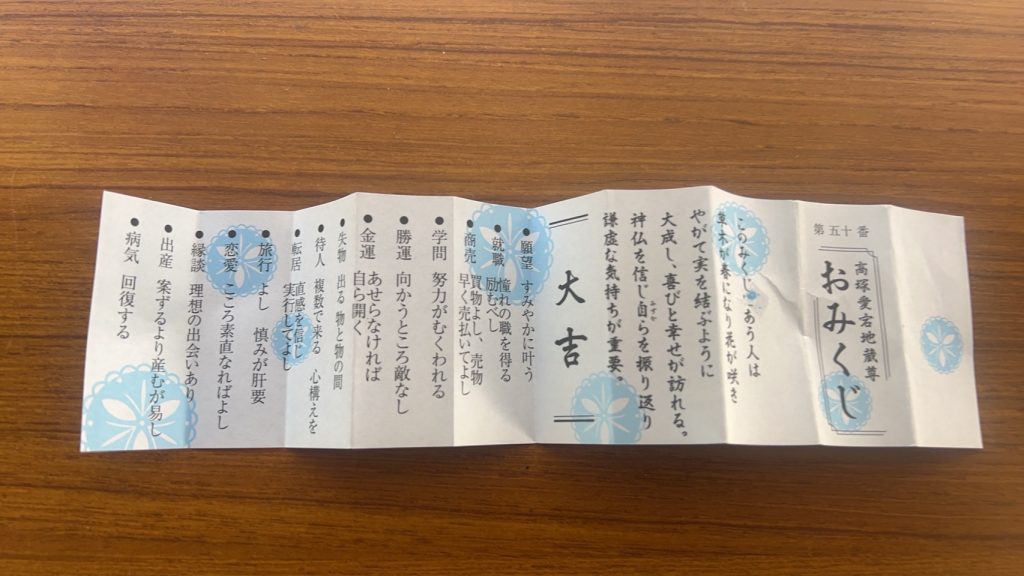 第五十番
高塚愛宕地蔵尊
おみくじ
このみくじにあう人は
草木が春になり花が咲き
やがて実を結ぶように
大成し、喜びと幸せが訪れる。
神仏を信じ自らを振り返り
謙虚な気持ちが重要。
大吉
●願望 すみやかに叶う
●就職 憧れの職を得る
励むべし
●商売 買物よし、売物
早く売払いてよし
●学問 努力がむくわれる
●勝運 向かうところ敵なし
●金運 あせらなければ
自ら開く
●失物 出る 物と物の間
●待人 複数で来る 心構えを
●転居 直感を信じ
実行してよし
●旅行 よし 慎みが肝要
●恋愛 こころ素直なればよし
●縁談 理想の出会いあり
●出産 案ずるより産むが易し
●病気 回復する